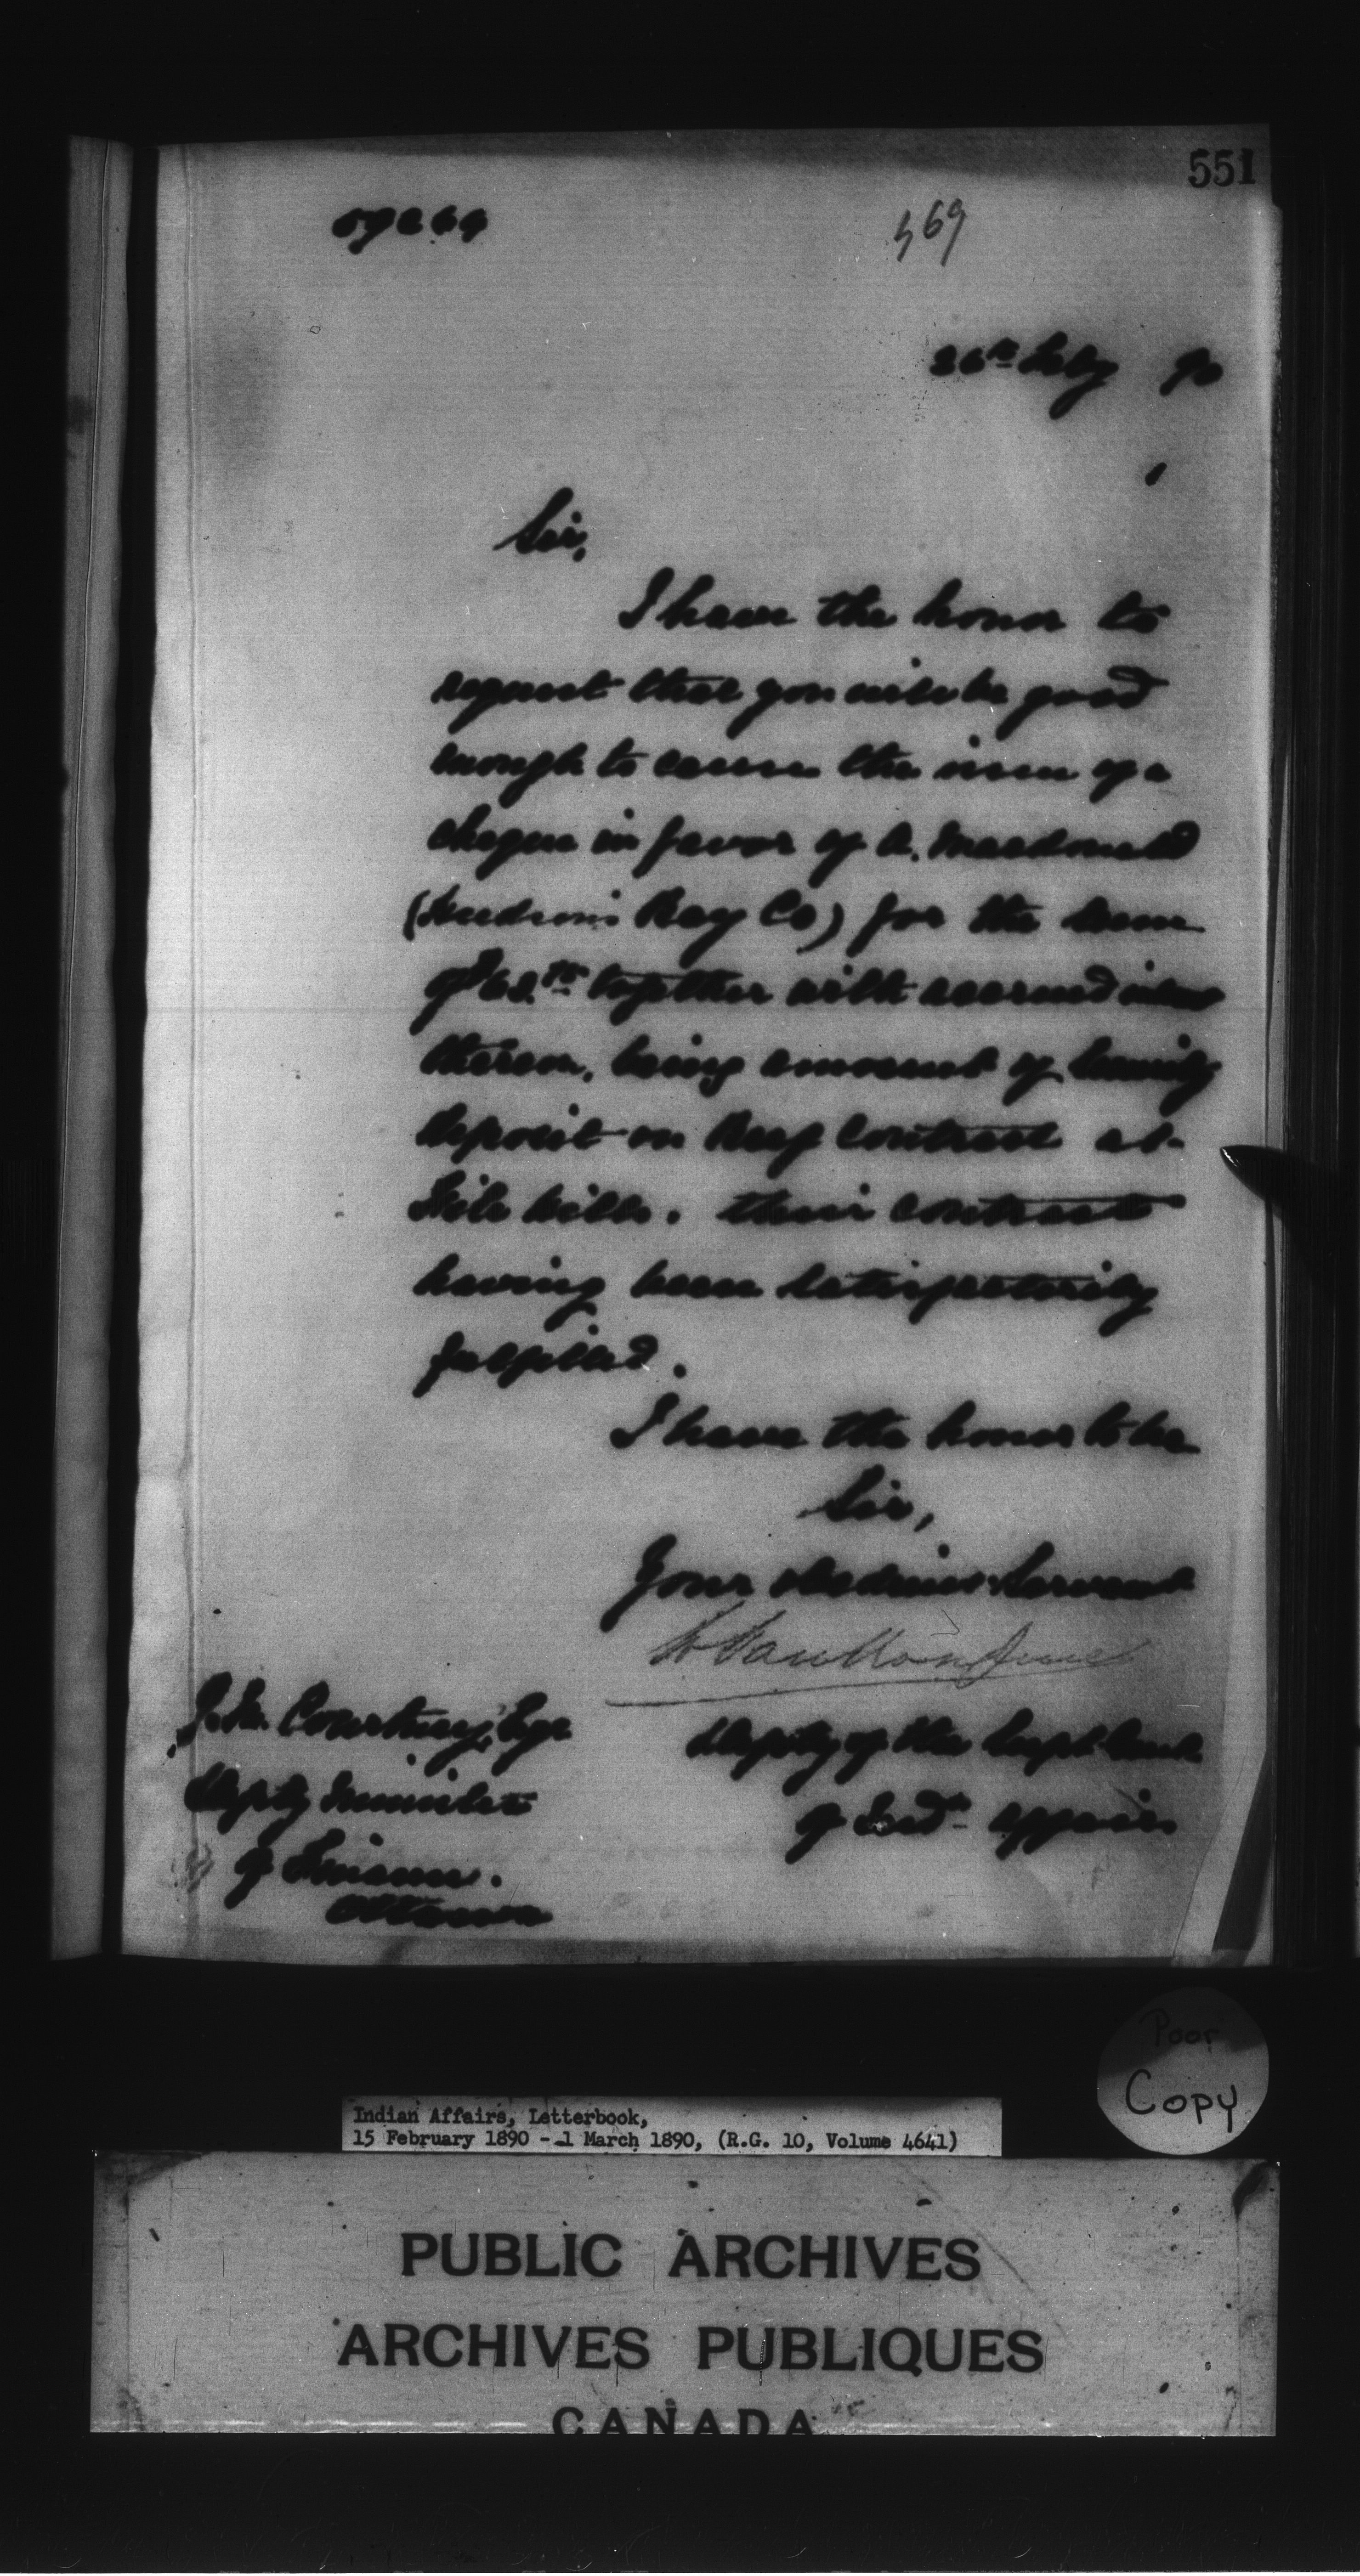 551
469
26th Feby 90
Sir,
I have the honor to
request that you will be good
enough to cause the issue of a
cheque in favor of A. Macdonald
(Hudson's Bay Co) for the sum
of together with accrued interest
thereon, being amount of security
deposit on Beef Contract at
File hills. their contract
having been satisfactorily
fulfilled.
I have the honor to be
Sir,
Your obedient Servant
L Vankoughnet
Depty of the Supt. Genl.
of Indn. affairs
J. M. Courtney, Esq
Depty Minister
of Finance.
Ottawa
Poor
Copy
Indian Affairs, Letterbook,
15 February 1890 - 1 March 1890, (R.G. 10, Volume 4641)
PUBLIC ARCHIVES
ARCHIVES PUBLIQUES
CANADA